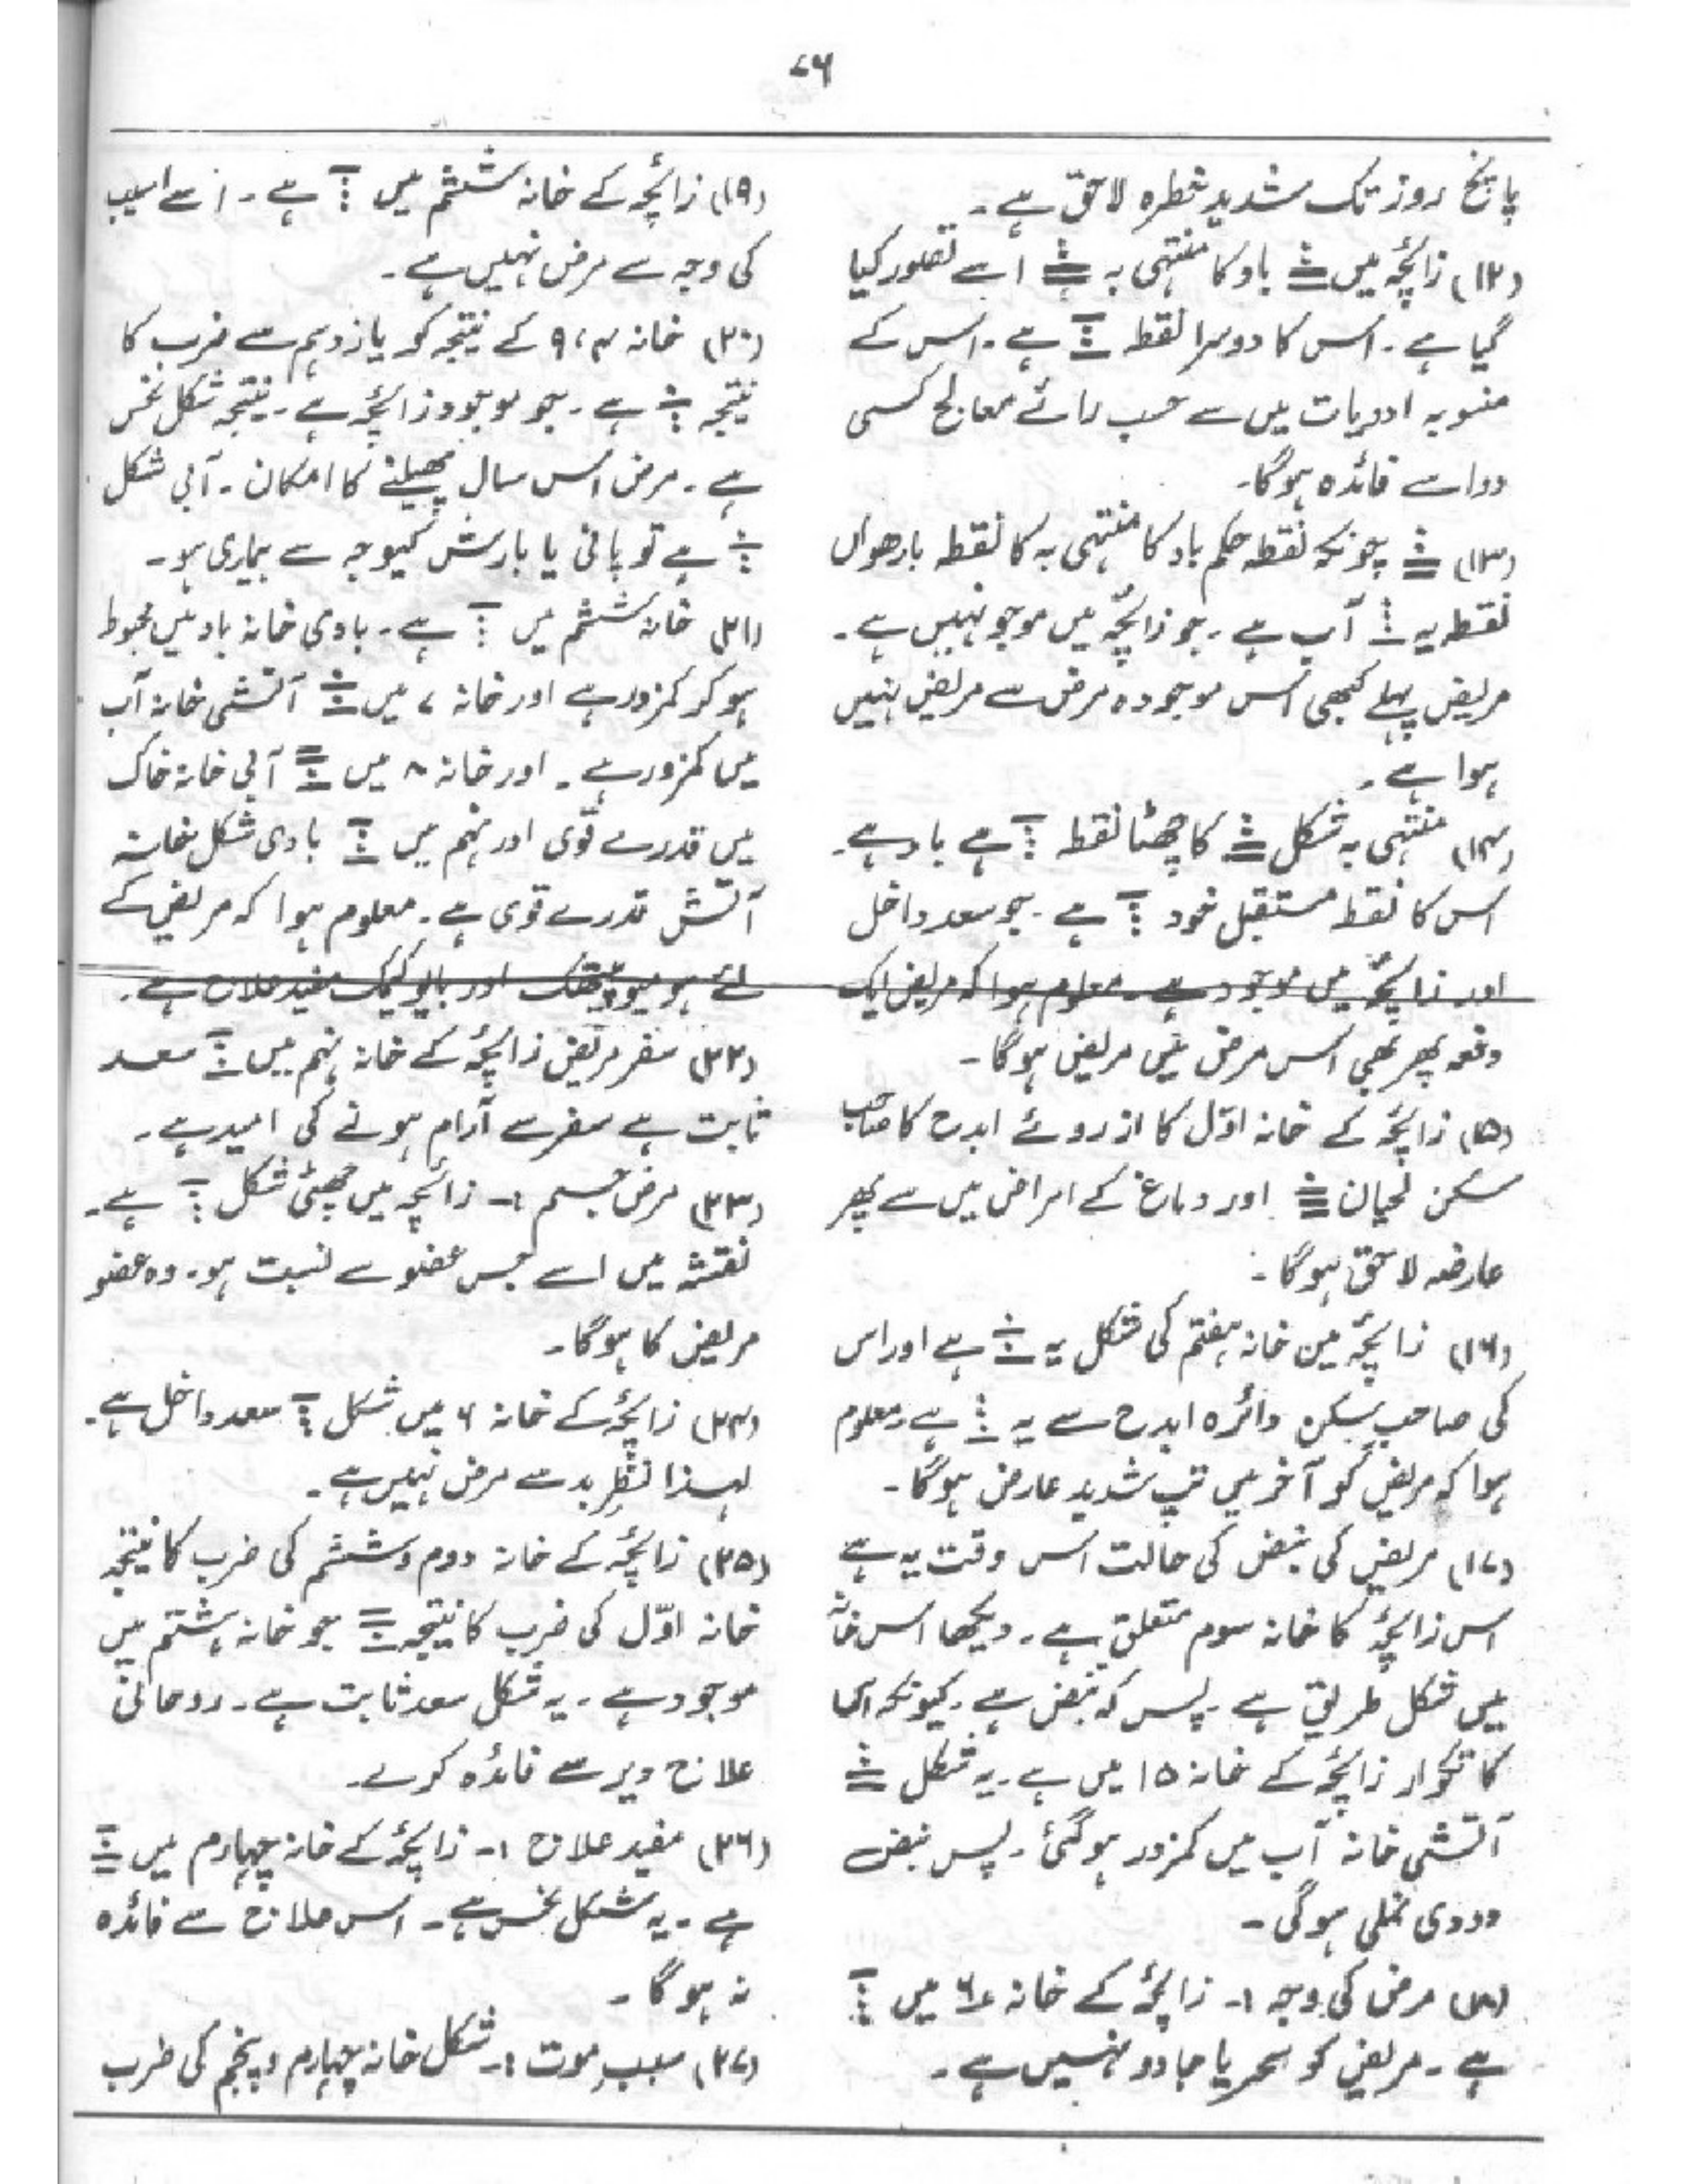 ۷۶
پانچ روز تک شدید خطرہ لاحق ہے۔
(۱۲) زائچہ میں باد کا منتہی بہ اسے تصور کیا
گیا ہے۔ اس کا دوسرا نقطہ ہے۔ اس کے
منسوبہ ادویات میں سے حسب رائے معالج کسی
دوا سے فائدہ ہوگا۔
(۱۳) چونکہ نقطہ حکم باد کا منتہی بہ کا نقطہ بارھواں
نقطہ یہ آب ہے۔ جو زائچہ میں موجو نہیں ہے۔
مریض پہلے کبھی اس موجودہ مرض سے مریض نہیں
ہوا ہے۔
(۱۴) منتہی بہ شکل کا چھٹا نقطہ ہے باد ہے۔
اس کا نقطہ مستقبل خود ہے۔ جو سعد داخل
اور زائچہ میں موجود ہے۔ معلوم ہوا کہ مریض ایک
دفعہ پھر بھی اس مرض میں مریض ہوگا۔
(۱۵) زائچہ کے خانہ اوّل کا ازروئے ابدح کا صاحب
سکن لحیان اور دماغ کے امراض میں سے پھر
عارضہ لاحق ہوگا۔
(۱۶) زائچہ میں خانہ ہفتم کی شکل یہ ہے اور اس
کی صاحب سکن دائرہ ابدح سے یہ ہے۔ معلوم
ہوا کہ مریض کو آخر میں تپ شدید عارض ہوگا۔
(۱۷) مریض کی نبض کی حالت اس وقت یہ ہے
اس زائچہ کا خانہ سوم متعلق ہے۔ دیکھا اس خانہ
میں شکل طریق ہے۔ پس کہ نبض ہے۔ کیونکہ اس
کا تکرار زائچہ کے خانہ ۱۵ میں ہے۔ یہ شکل
آتشی خانہ آب میں کمزور ہوگئی۔ پس نبض
دودی نملی ہوگی۔
(۱۸) مرض کی وجہ :۔ زائچہ کے خانہ ۶ میں
ہے۔ مریض کو سحر یا جادو نہیں ہے۔
(۱۹) زائچہ کے خانہ ششم میں ہے۔ اسے اسیب
کی وجہ سے مرض نہیں ہے۔
(۲۰) خانہ ۴، ۹ کے نتیجہ کو یازدہم سے ضرب کا
نتیجہ ہے۔ جو موجود زائچہ ہے۔ نتیجہ شکل نحس
ہے۔ مرض اس سال پھیلنے کا امکان۔ آبی شکل
ہے تو پانی یا بارش کیوجہ سے بیماری ہو۔
(۲۱) خانہ ششم میں ہے۔ بادی خانہ باد میں مجبوط
ہوکر کمزور ہے اور خانہ ۷ میں آتشی خانہ آب
میں کمزور ہے۔ اور خانہ ۸ میں آبی خانہ خاک
میں قدرے قوّی اور نہم میں بادی شکل خانہ
آتش قدرے قوی ہے۔ معلوم ہوا کہ مریض کے
لئے ہومیوپیتھک اور بایوکیمک مفید علاج ہے۔
(۲۲) سفر مریض زائچہ کے خانہ نہم میں سعد
ثابت ہے سفر سے آرام ہونے کی امید ہے۔
(۲۳) مرض جسم :۔ زائچہ میں چھٹی شکل ہے۔
نقشہ میں اسے جس عضو سے نسبت ہو۔ وہ عضو
مریض کا ہوگا۔
(۲۴) زائچہ کے خانہ ۶ میں شکل سعد داخل ہے۔
لہذا نظرِ بد سے مرض نہیں ہے۔
(۲۵) زائچہ کے خانہ دوم و ششم کی ضرب کا نتیجہ
خانہ اوّل کی ضرب کا نتیجہ جو خانہ ہشتم میں
موجود ہے۔ یہ شکل سعد ثابت ہے۔ روحانی
علاج دیر سے فائدہ کرے۔
(۲۶) مفید علاج :۔ زائچہ کے خانہ چہارم میں
ہے۔ یہ شکل نحس ہے۔ اس علاج سے فائدہ
نہ ہوگا۔
(۲۷) سببِ موت :۔ شکل خانہ چہارم و پنجم کی ضرب